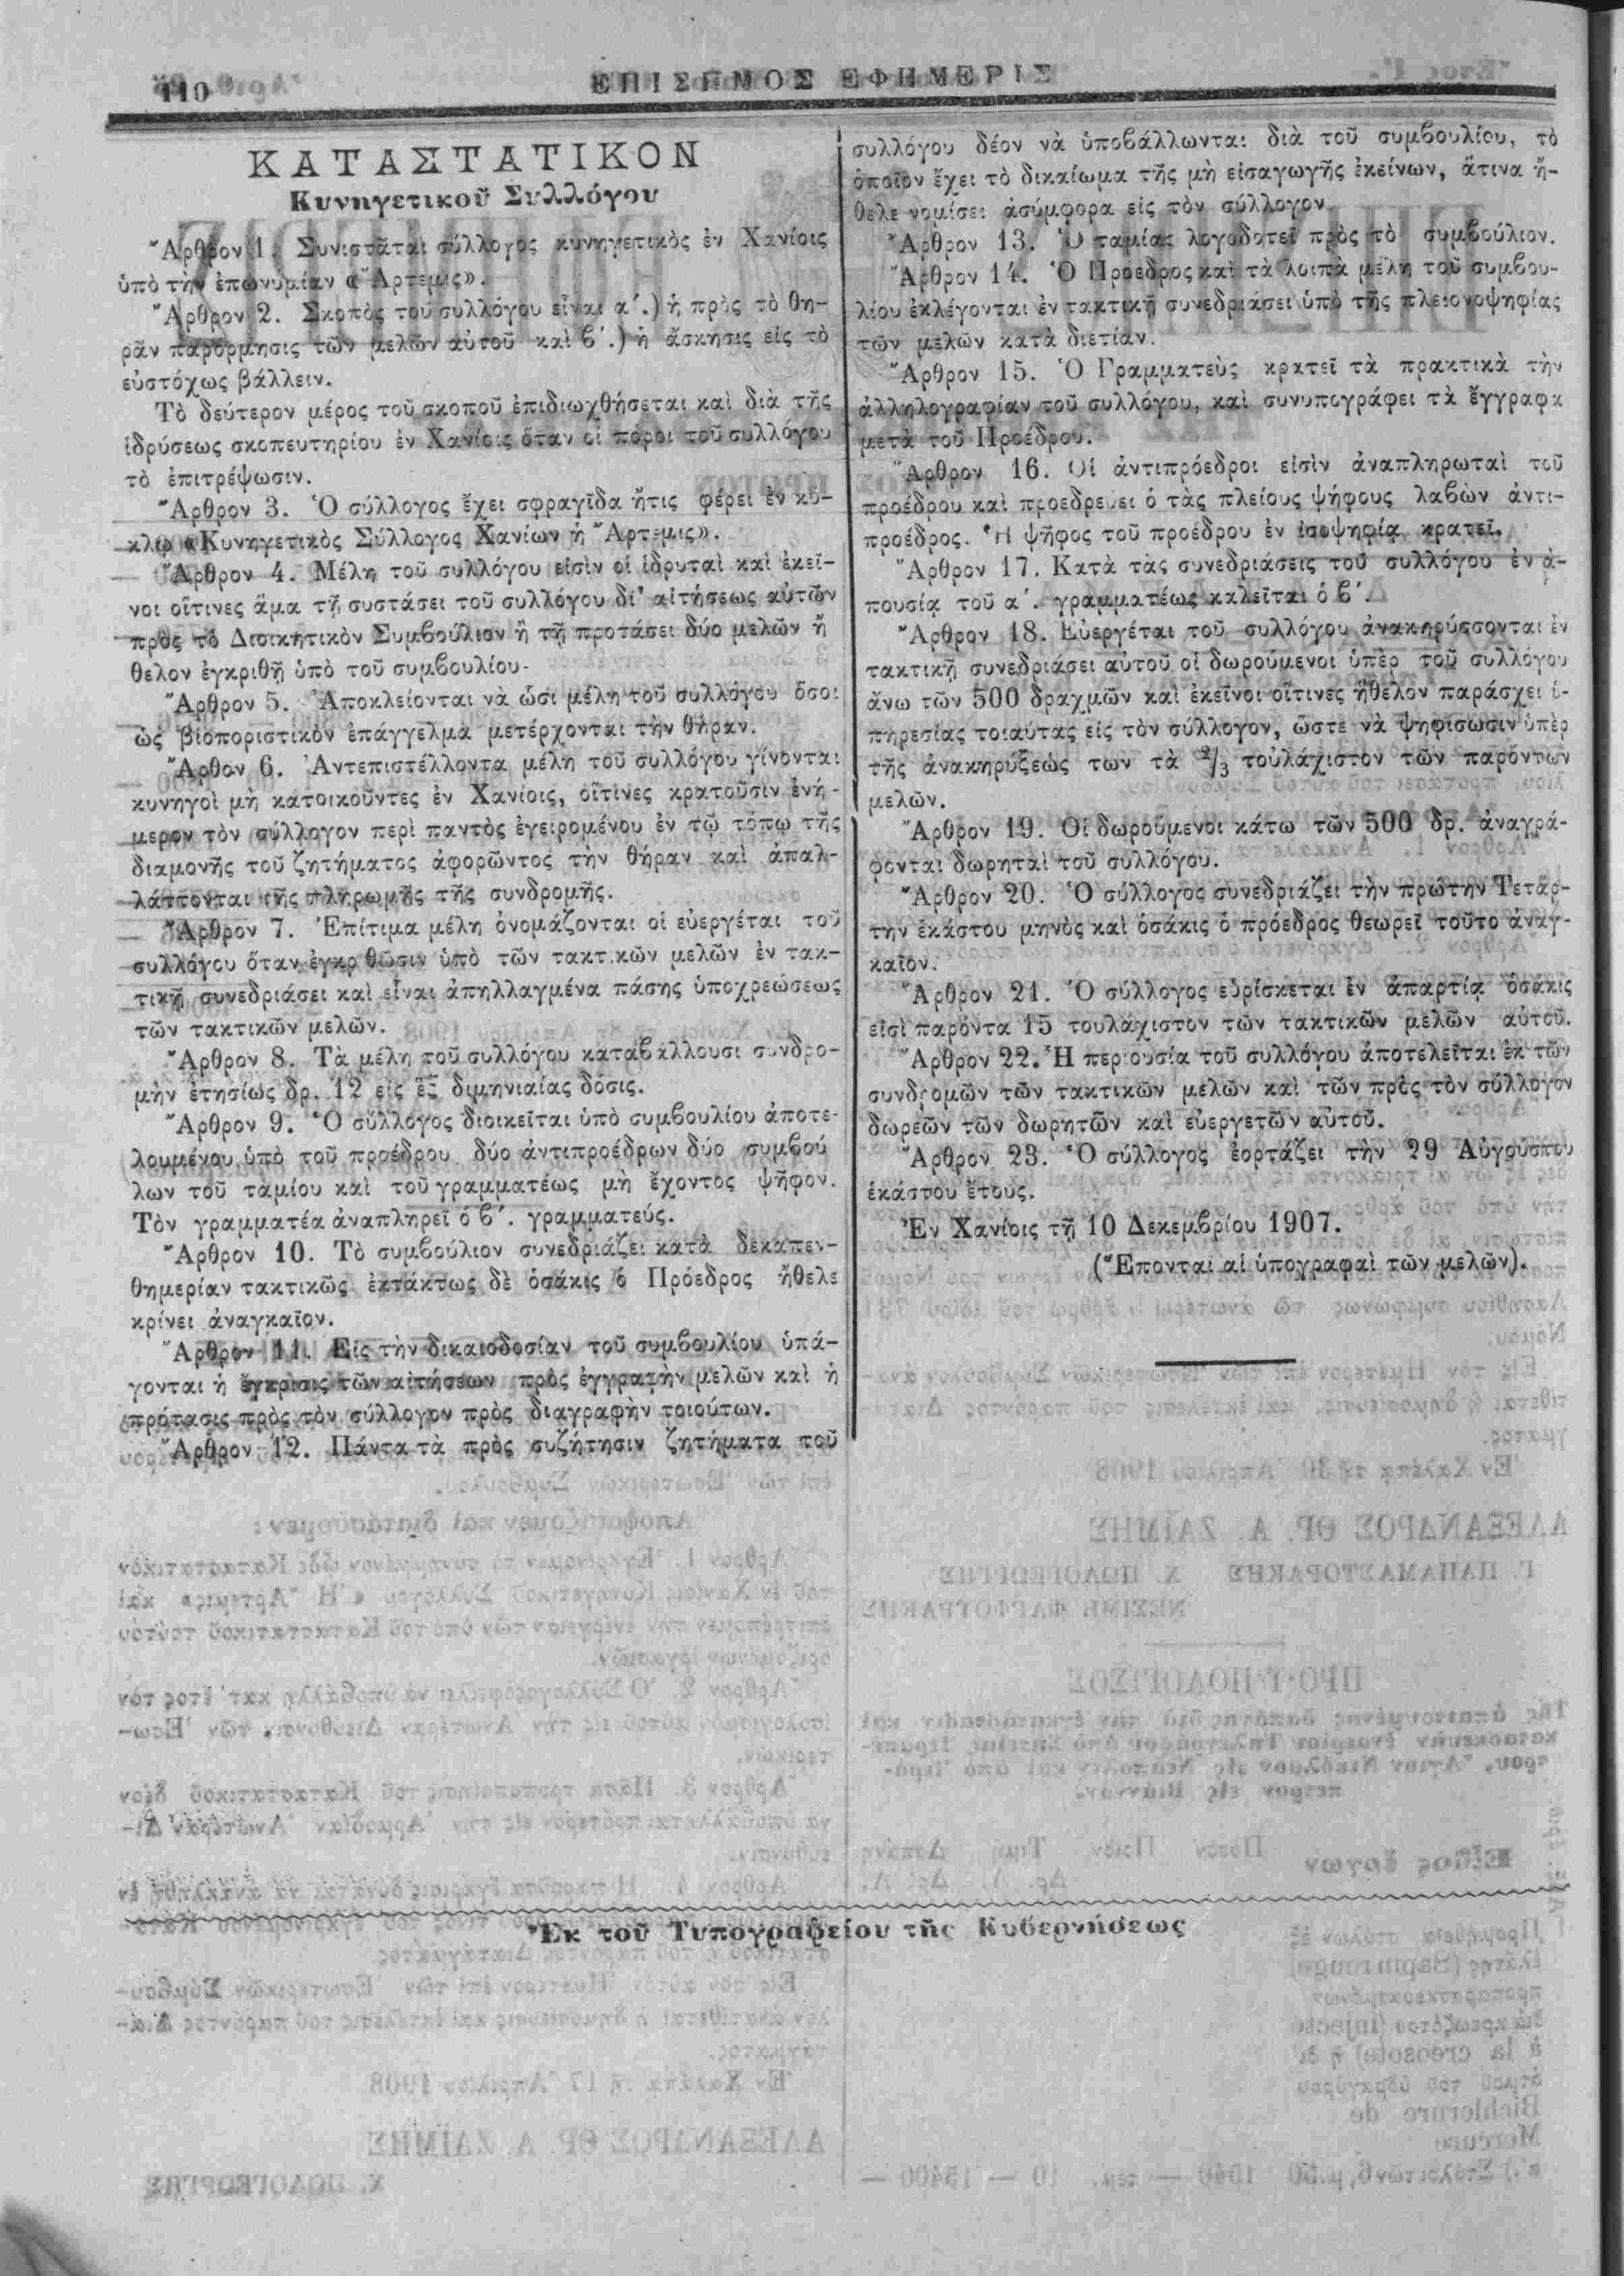 110
ΕΠΙΣΗΜΟΣ ΕΦΗΜΕΡΙΣ
ΚΑΤΑΣΤΑΤΙΚΟΝ
Κυνηγετικοῦ Συλλόγου
Ἄρθρον 1. Συνιστᾶται σύλλογος κυνηγετικὸς ἐν Χανίοις
ὑπὸ τὴν ἐπωνυμίαν «Ἄρτεμις».
Ἄρθρον 2. Σκοπὸς τοῦ συλλόγου εἶναι α΄.) ἡ πρὸς τὸ θη-
ρᾶν παρόρμησις τῶν μελῶν αὐτοῦ καὶ β΄.) ἡ ἄσκησις εἰς τὸ
εὐστόχως βάλλειν.
Τὸ δεύτερον μέρος τοῦ σκοποῦ ἐπιδιωχθήσεται καὶ διὰ τῆς
ἱδρύσεως σκοπευτηρίου ἐν Χανίοις ὅταν οἱ πόροι τοῦ συλλόγου
τὸ ἐπιτρέψωσιν.
Ἄρθρον 3. Ὁ σύλλογος ἔχει σφραγῖδα ἥτις φέρει ἐν κύ-
κλῳ «Κυνηγετικὸς Σύλλογος Χανίων ἡ Ἄρτεμις».
Ἄρθρον 4. Μέλη τοῦ συλλόγου εἰσὶν οἱ ἱδρυταὶ καὶ ἐκεῖ-
νοι οἵτινες ἅμα τῇ συστάσει τοῦ συλλόγου δι' αἰτήσεως αὐτῶν
πρὸς τὸ Διοικητικὸν Συμβούλιον ἢ τῇ προτάσει δύο μελῶν ἤ
θελον ἐγκριθῆ ὑπὸ τοῦ συμβουλίου.
Ἄρθρον 5. Ἀποκλείονται νὰ ὦσι μέλη τοῦ συλλόγου ὅσοι
ὡς βιοποριστικὸν ἐπάγγελμα μετέρχονται τὴν θήραν.
Ἄρθρον 6. Ἀντεπιστέλλοντα μέλη τοῦ συλλόγου γίνονται
κυνηγοὶ μὴ κατοικοῦντες ἐν Χανίοις, οἵτινες κρατοῦσιν ἐνή-
μερον τὸν σύλλογον περὶ παντὸς ἐγειρομένου ἐν τῷ τόπῳ τῆς
διαμονῆς τοῦ ζητήματος ἀφορῶντος τὴν θήραν καὶ ἀπαλ-
λάττονται τῆς πληρωμῆς τῆς συνδρομῆς.
Ἄρθρον 7. Ἐπίτιμα μέλη ὀνομάζονται οἱ εὐεργέται τοῦ
συλλόγου ὅταν ἐγκριθῶσιν ὑπὸ τῶν τακτικῶν μελῶν ἐν τακ-
τικῇ συνεδριάσει καὶ εἶναι ἀπηλλαγμένα πάσης ὑποχρεώσεως
τῶν τακτικῶν μελῶν.
Ἄρθρον 8. Τὰ μέλη τοῦ συλλόγου καταβάλλουσι συνδρο-
μὴν ἐτησίως δρ. 12 εἰς ἓξ διμηνιαίας δόσις.
Ἄρθρον 9. Ὁ σύλλογος διοικεῖται ὑπὸ συμβουλίου ἀποτε-
λουμένου ὑπὸ τοῦ προέδρου δύο ἀντιπροέδρων δύο συμβού
λων τοῦ ταμίου καὶ τοῦ γραμματέως μὴ ἔχοντος ψῆφον.
Τὸν γραμματέα ἀναπληρεῖ ὁ β΄. γραμματεύς.
Ἄρθρον 10. Τὸ συμβούλιον συνεδριάζει κατὰ δεκαπεν-
θημερίαν τακτικῶς ἐκτάκτως δὲ ὁσάκις ὁ Πρόεδρος ἤθελε
κρίνει ἀναγκαῖον.
Ἄρθρον 11. Εἰς τὴν δικαιοδοσίαν τοῦ συμβουλίου ὑπά-
γονται ἡ ἔγκρισις τῶν αἰτήσεων πρὸς ἐγγραφὴν μελῶν καὶ ἡ
πρότασις πρὸς τὸν σύλλογον πρὸς διαγραφὴν τοιούτων.
Ἄρθρον 12. Πάντα τὰ πρὸς συζήτησιν ζητήματα τοῦ
συλλόγου δέον νὰ ὑποβάλλωνται διὰ τοῦ συμβουλίου, τὸ
ὁποῖον ἔχει τὸ δικαίωμα τῆς μὴ εἰσαγωγῆς ἐκείνων, ἅτινα ἤ-
θελε νομίσει ἀσύμφορα εἰς τὸν σύλλογον.
Ἄρθρον 13. Ὁ ταμίας λογοδοτεῖ πρὸς τὸ συμβούλιον.
Ἄρθρον 14. Ὁ Πρόεδρος καὶ τὰ λοιπὰ μέλη τοῦ συμβου-
λίου ἐκλέγονται ἐν τακτικῇ συνεδριάσει ὑπὸ τῆς πλειονοψηφίας
τῶν μελῶν κατὰ διετίαν.
Ἄρθρον 15. Ὁ Γραμματεὺς κρατεῖ τὰ πρακτικὰ τὴν
ἀλληλογραφίαν τοῦ συλλόγου, καὶ συνυπογράφει τὰ ἔγγραφα
μετὰ τοῦ Προέδρου.
Ἄρθρον 16. Οἱ ἀντιπρόεδροι εἰσὶν ἀναπληρωταὶ τοῦ
προέδρου καὶ προεδρεύει ὁ τὰς πλείους ψήφους λαβὼν ἀντι-
πρόεδρος. Ἡ ψῆφος τοῦ προέδρου ἐν ἰσοψηφίᾳ κρατεῖ.
Ἄρθρον 17. Κατὰ τὰς συνεδριάσεις τοῦ συλλόγου ἐν ἀ-
πουσίᾳ τοῦ α΄. γραμματέως καλεῖται ὁ β΄.
Ἄρθρον 18. Εὐεργέται τοῦ συλλόγου ἀνακηρύσσονται ἐν
τακτικῇ συνεδριάσει αὐτοῦ οἱ δωρούμενοι ὑπὲρ τοῦ συλλόγου
ἄνω τῶν 500 δραχμῶν καὶ ἐκεῖνοι οἵτινες ἤθελον παράσχει ὑ-
πηρεσίας τοιαύτας εἰς τὸν σύλλογον, ὥστε νὰ ψηφίσωσιν ὑπὲρ
τῆς ἀνακηρύξεώς των τὰ 2/3 τοὐλάχιστον τῶν παρόντων
μελῶν.
Ἄρθρον 19. Οἱ δωρούμενοι κάτω τῶν 500 δρ. ἀναγρά-
φονται δωρηταὶ τοῦ συλλόγου.
Ἄρθρον 20. Ὁ σύλλογος συνεδριάζει τὴν πρώτην Τετάρ-
την ἑκάστου μηνὸς καὶ ὁσάκις ὁ πρόεδρος θεωρεῖ τοῦτο ἀναγ-
καῖον.
Ἄρθρον 21. Ὁ σύλλογος εὑρίσκεται ἐν ἀπαρτίᾳ ὁσάκις
εἰσὶ παρόντα 15 τουλάχιστον τῶν τακτικῶν μελῶν αὐτοῦ.
Ἄρθρον 22. Ἡ περιουσία τοῦ συλλόγου ἀποτελεῖται ἐκ τῶν
συνδρομῶν τῶν τακτικῶν μελῶν καὶ τῶν πρὸς τὸν σύλλογον
δωρεῶν τῶν δωρητῶν καὶ εὐεργετῶν αὐτοῦ.
Ἄρθρον 23. Ὁ σύλλογος ἑορτάζει τὴν 29 Αὐγούστου
ἑκάστου ἔτους.
Ἐν Χανίοις τῇ 10 Δεκεμβρίου 1907.
(Ἕπονται αἱ ὑπογραφαὶ τῶν μελῶν).
Ἐκ τοῦ Τυπογραφείου τῆς Κυβερνήσεως